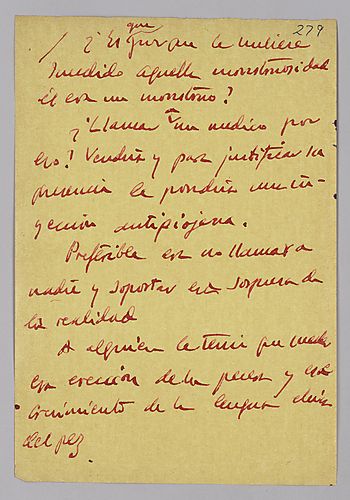 279
¿Es que porque le hubiese
sucedido aquella monstruosidad
él era un monstruo?
¿Llamar a un medico por
eso? Vendría y para justificar su
presencia le pondría una in-
yección antipiojana.
Preferible era no llamar a
nadie y soportar esa sorpresa de
la realidad
A alguien le tenía que
esa erección de la y
crecimiento de la lengua
del pez